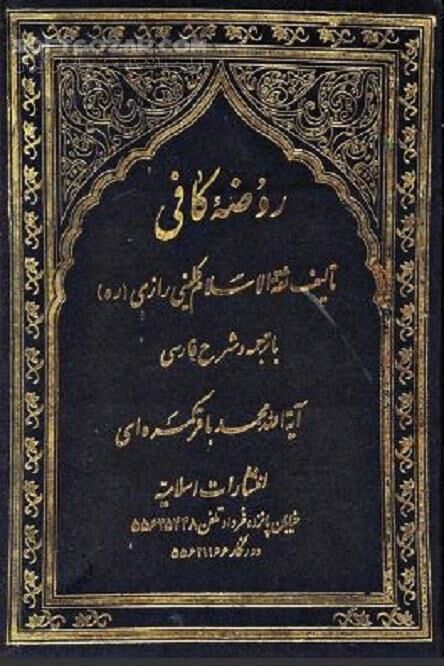 SOFTGOZAR.COM
روضهٔ کافی
تألیف ثقة الاسلام کلینی رازی (ره)
با ترجمه و شرح فارسی
آیة الله محمد باقر کمره‌ای
انتشارات اسلامیه
خیابان پانزده خرداد تلفن ۵۵۶۳۵۴۴۸
دورنگار ۵۵۶۲۱۱۶۶